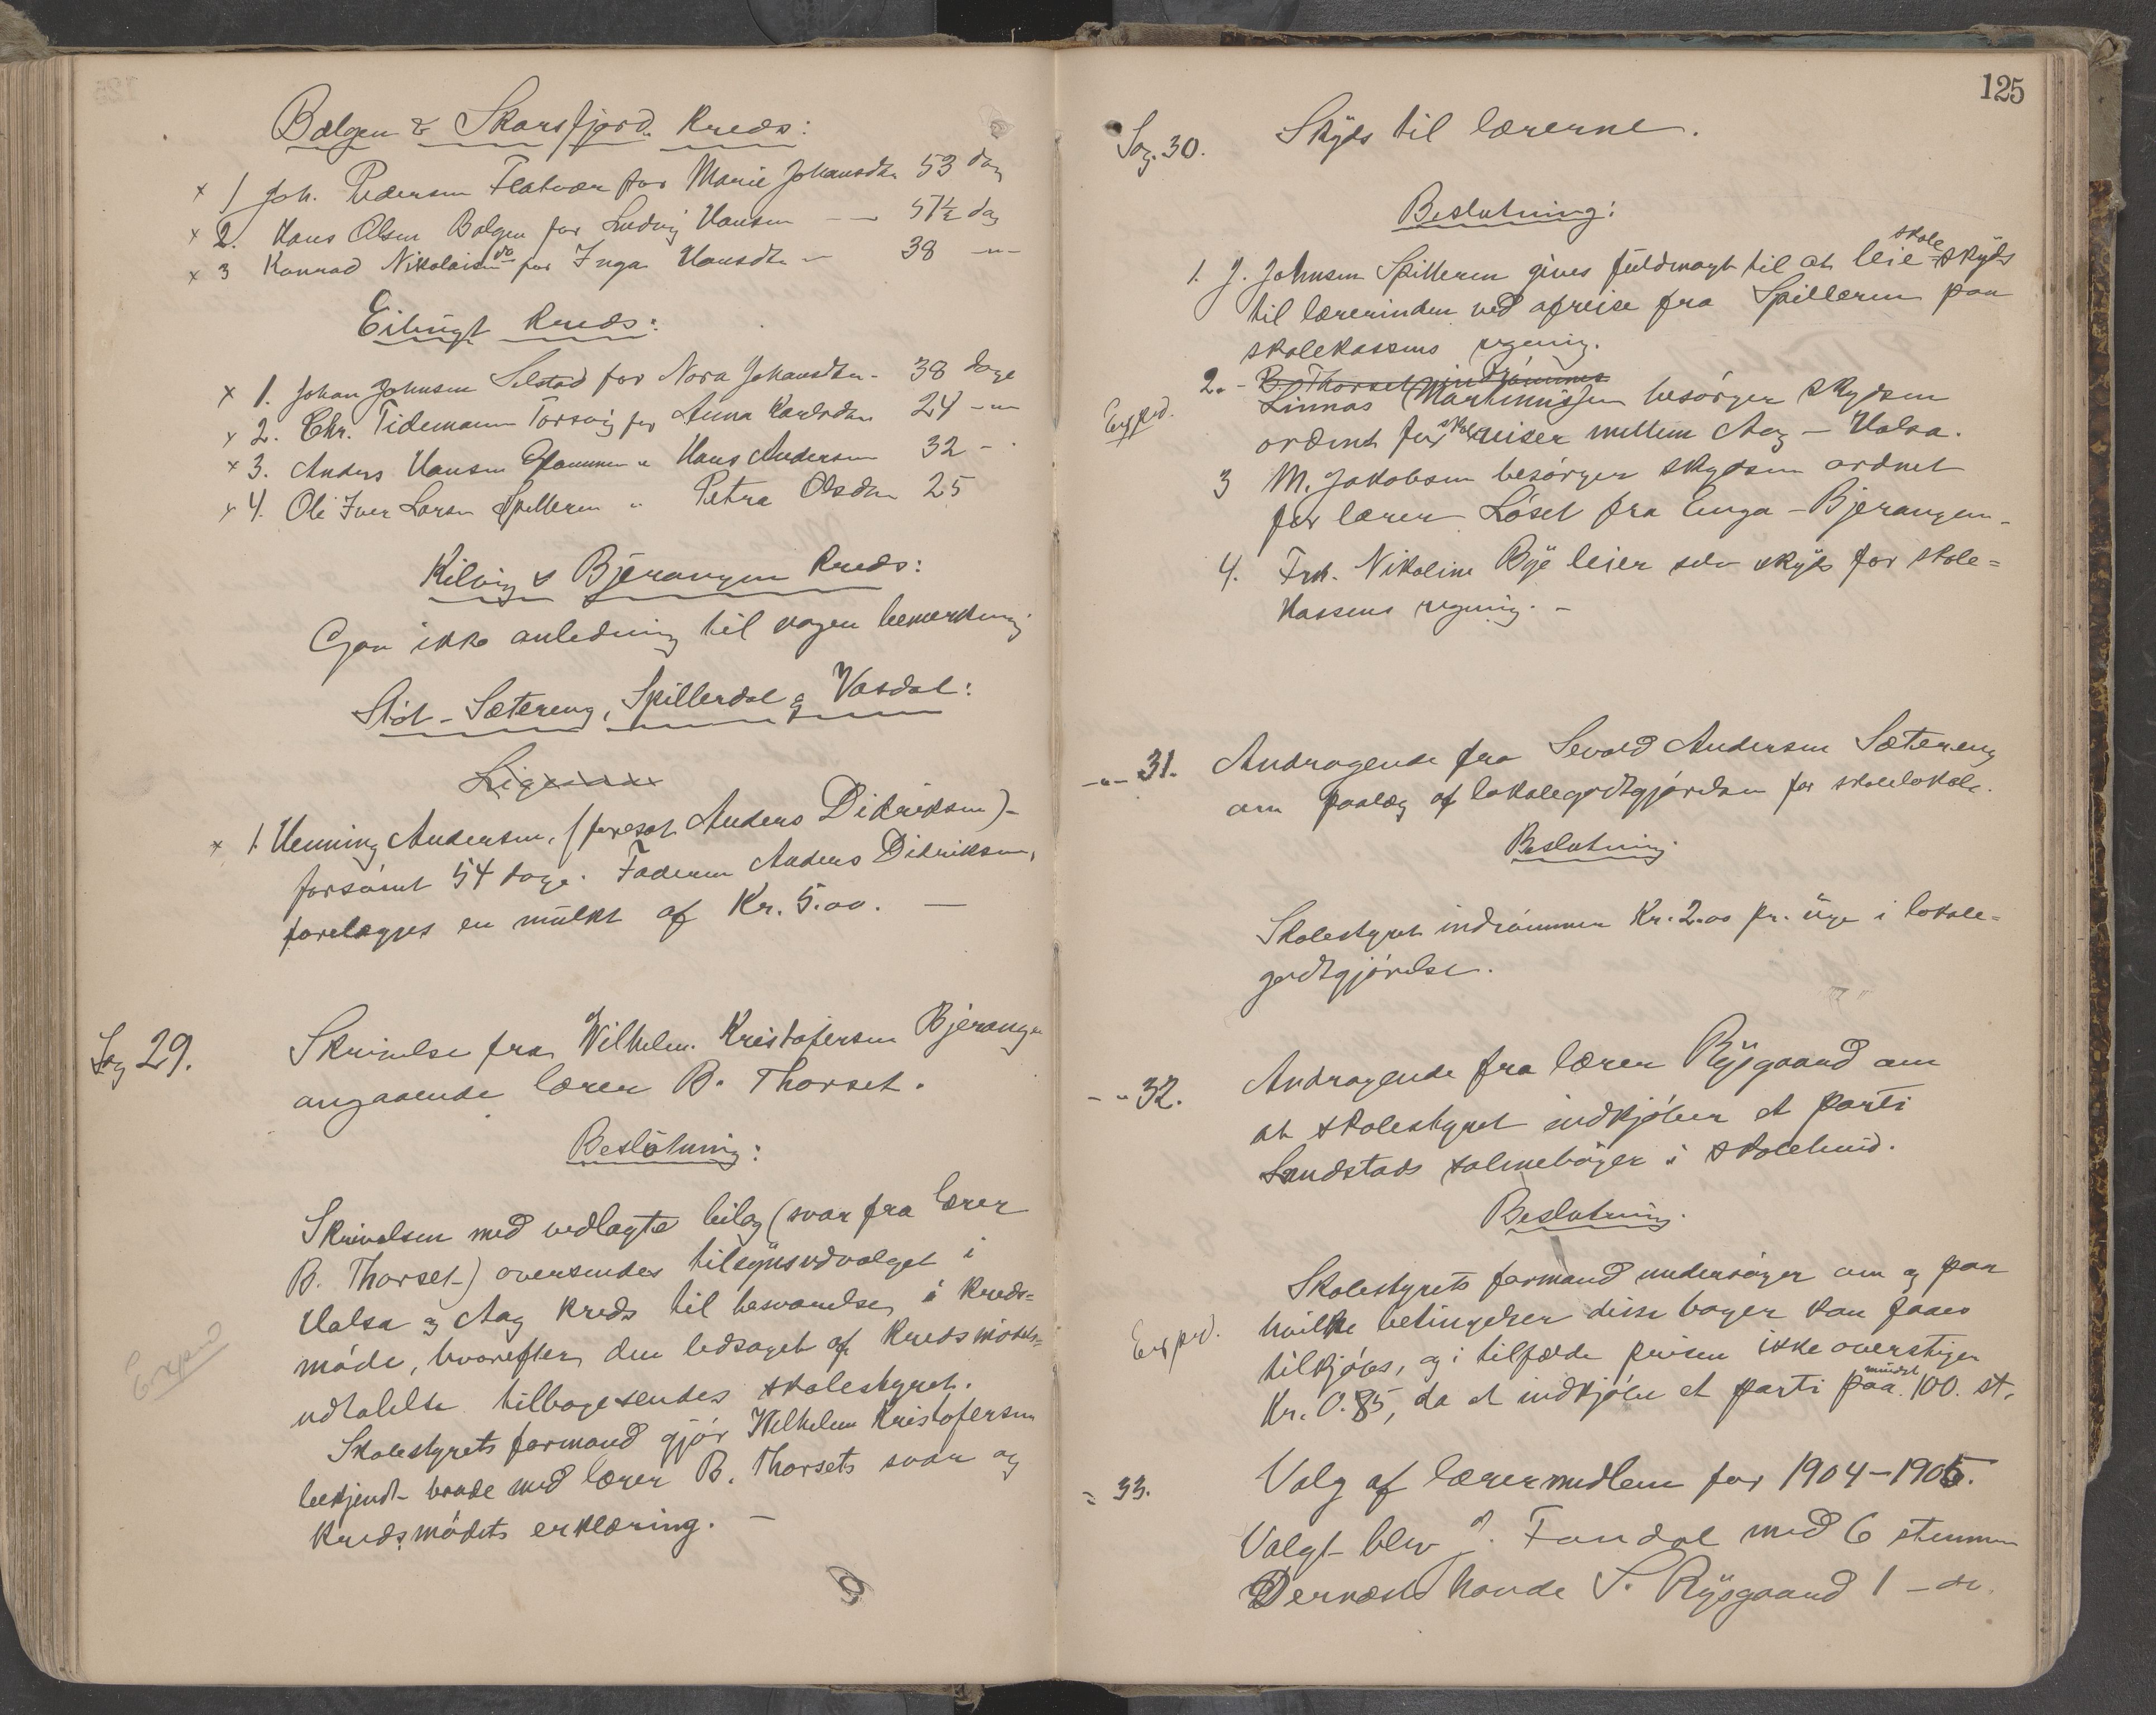 Bolgen & Skarsfjord Kreds:
x 1 Joh. Pedersen Flatvær for Marie Johansdtr 53 dag
x 2. Hans Olsen Bolgen for Ludvig Hansen — 57½ dag
x 3 Konrad Nikolaisen do for Inga Hansdtr — 38 —"—
Eilingt Kreds:
x 1. Johan Johnsen Selstad for Nora Johansdtr - 38 dage
x 2. Chr. Tidemann Torsvig for Anna Karlsdtr 24 —"—
x 3. Anders Hansen " Hans Andersen 32 -
x 4. Ole Iver Larsen Spilleren " Petra Olsdtr 25
Kilvig & Bjerangen Kreds:
Gav ikke anledning til nogen bemerkning
Stöt - Sætereng, Spillerdal og Vasdal:
1. Henning Andersen, (foresat Anders Didriksen) -
forsömt 54 dage. Faderen Anders Didriksen,
forelægges en mulkt af Kr. 5.00. —
Sag 29. Skrivelse fra Vilhelm Kristofersen Bjerangen
angaaende lærer B. Thorset.
Beslutning:
Skrivelsen med vedlagte bilag (svar fra lærer
B. Thorset) oversendes tilsynsudvalget i
Halsa og Aag Kreds til besvarelse i Kreds=
möde, hvorefter den ledsaget af Kredsmödets=
udtalelse tilbagesendes skolestyret.
Exped
Skolestyrets formand gjör Vilhelm Kristofersen
bekjendt baade med lærer B. Thorsets svar og
Kredsmödets erklæring. —
125
Sag. 30. Skyds til lærerne.
Beslutning:
1. J. Johnsen Spilleren gives fuldmagt til at leie skole=skyds
til lærerinden ved afreise fra Spilleren paa
skolekassens regning.
2. - B. Thorset indrömmes
Linnas Martinussen besörger skydsen
Exped. ordnet for skolereiser mellem Aag - Halsa.
3 M. Jakobsen besörger skydsen ordnet
for lærer Löset fra Enga - Bjerangen.
4. Frk. Nikoline Bye leier selv skyds for skole=
kassens regning. -
—"— 31. Andragende fra Sevald Andersen Sætereng
om paalæg af lokalegodtgjörelsen for skolelokale.
Beslutning
Skolestyret indrömmer Kr. 2.00 pr. uge i lokale=
godtgjörelse.
—"— 32. Andragende fra lærer Rysgaard om
at skolestyret indkjöber et parti
Landstads salmeböger i skolehuid.
Beslutning.
Skolestyrets formand undersöger om og paa
Exped. hvilke betingelser disse böger kan faaes
tilkjöbs, og i tilfælde prisen ikke overstiger
Kr. 0.85, da at indkjöbe et parti paa mindst 100. st.
= 33. Valg af lærermedlem for 1904-1905.
Valgt blev J. Fondal med 6 stemmer
Dernæst havde S. Rysgaard 1 - do.